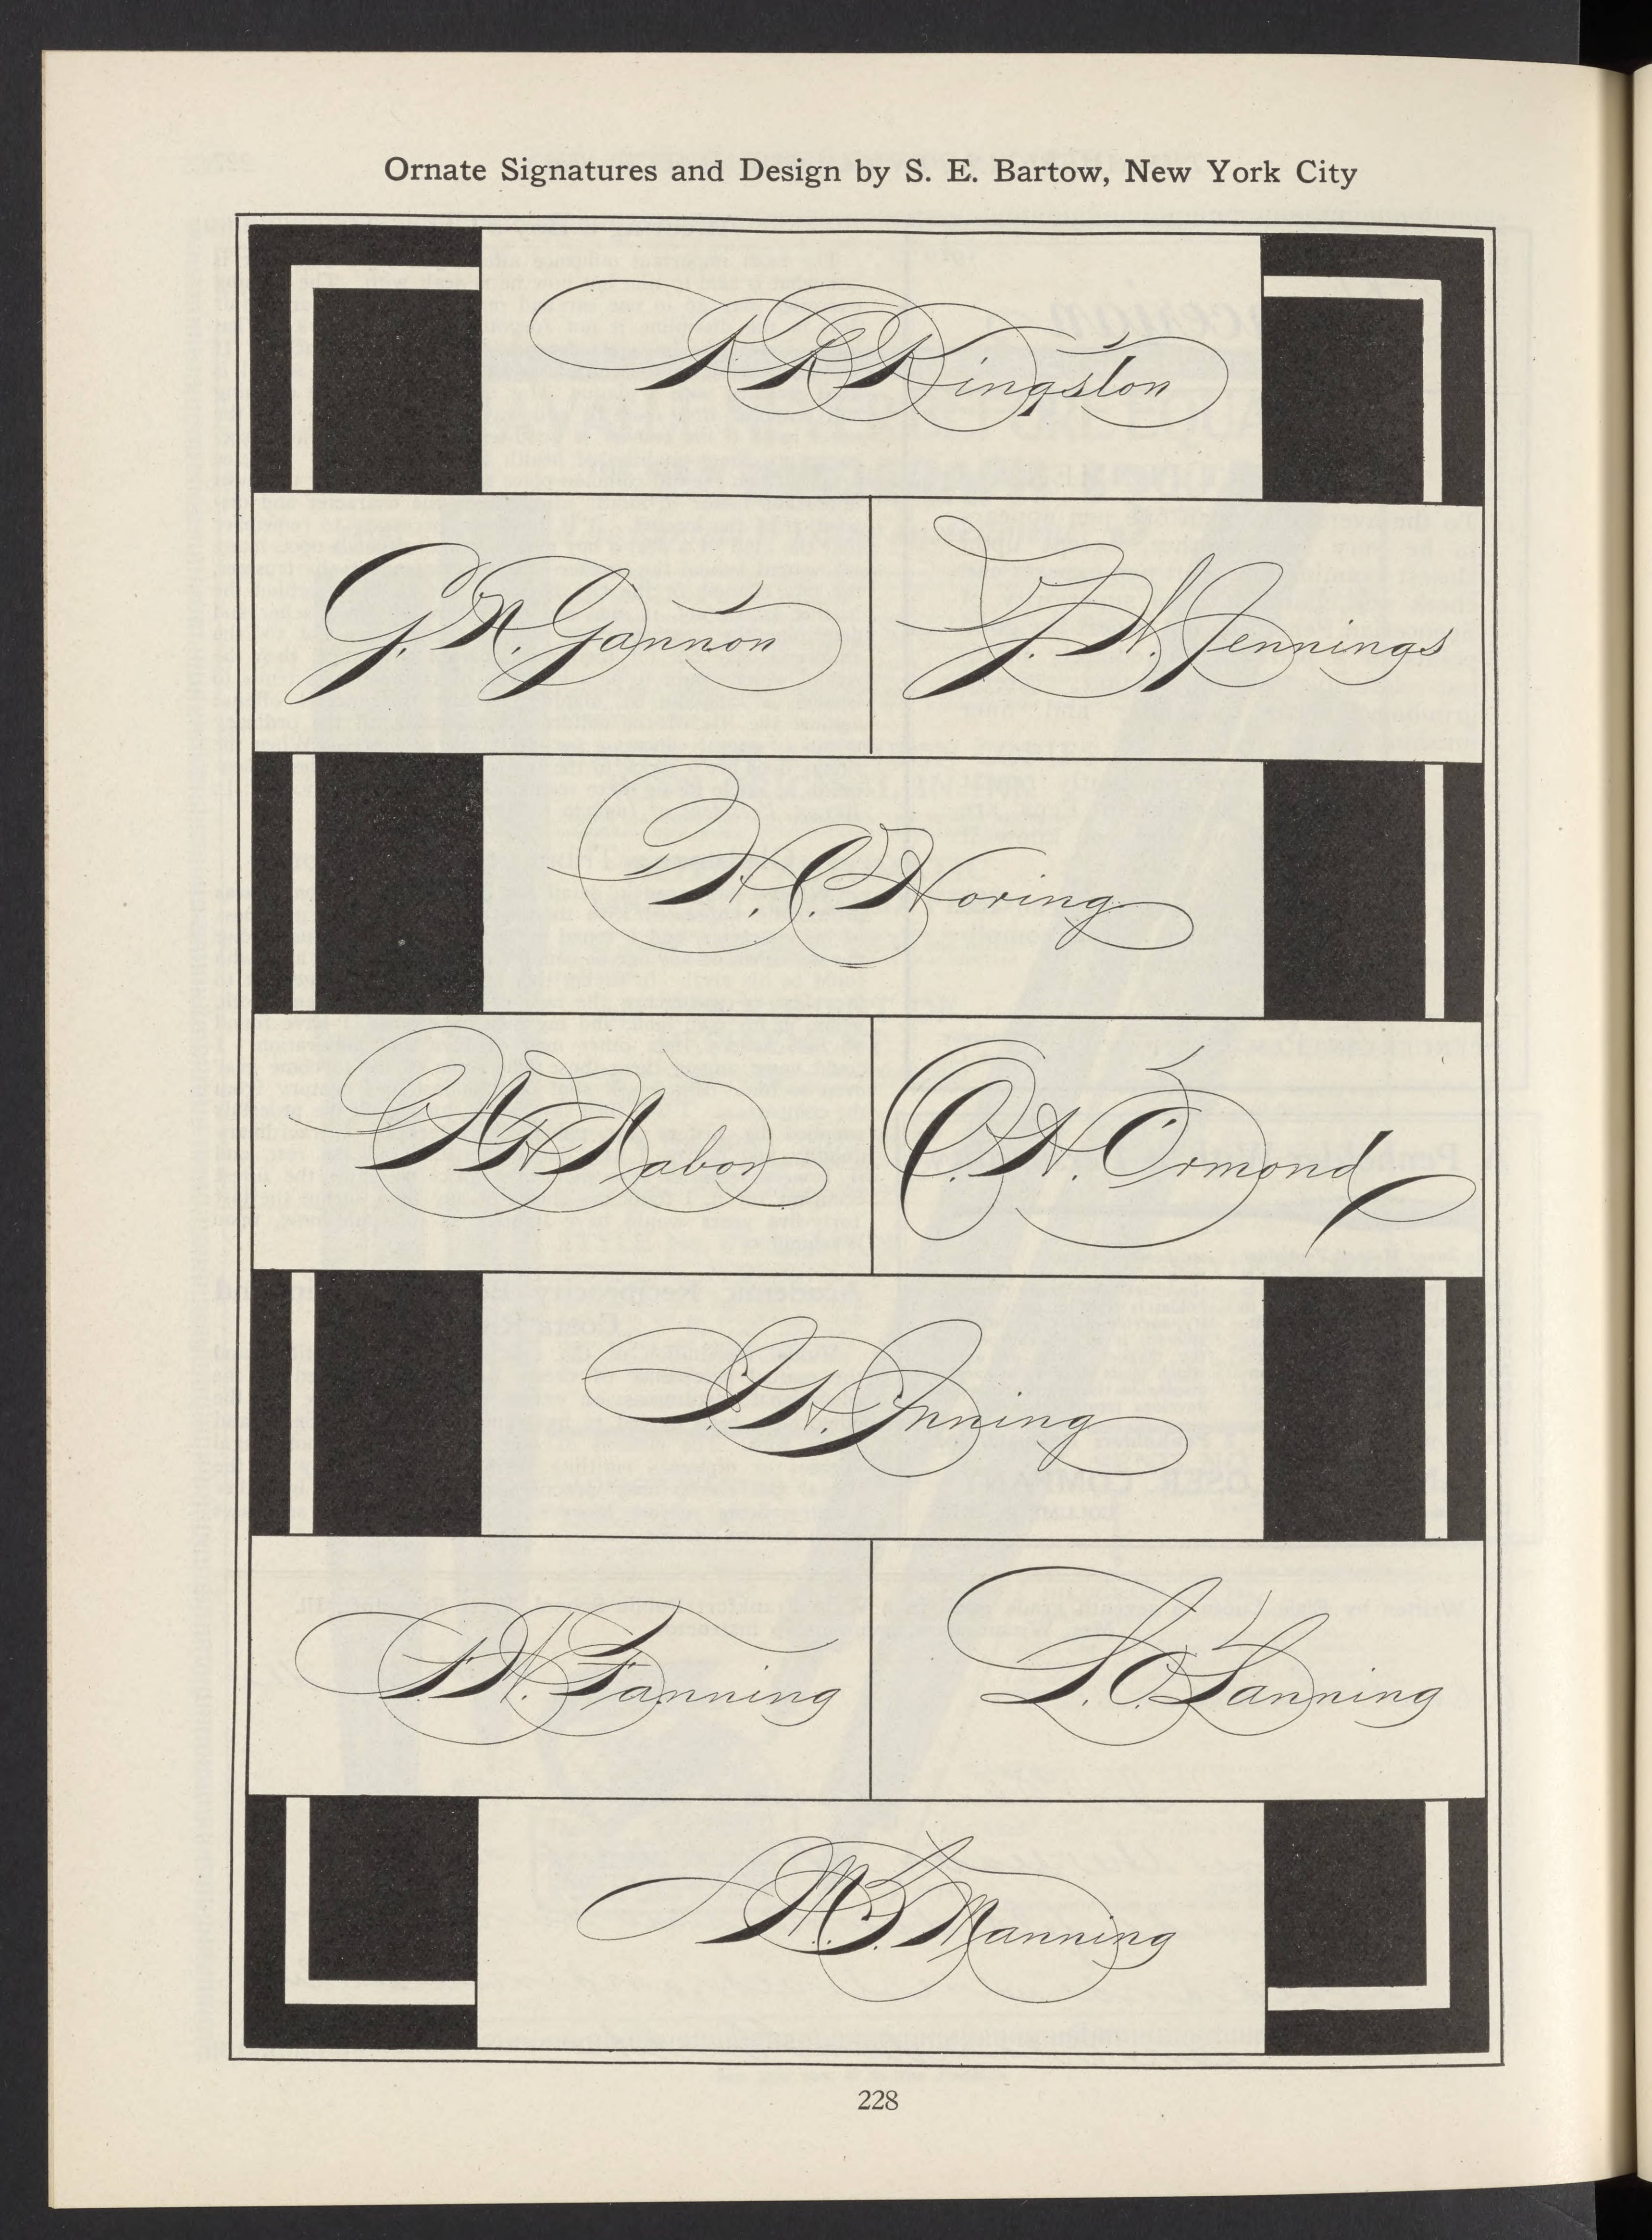 Ornate Signatures and Design by S. E. Bartow, New York City
K R Kingston
G. N. Gannon
J. W. Jennings
H. C. Horing
N N Nabon
O. N. Ormond
I. N. Inning
F. N. Fanning
L. O. Lanning
M. B. Manning
228